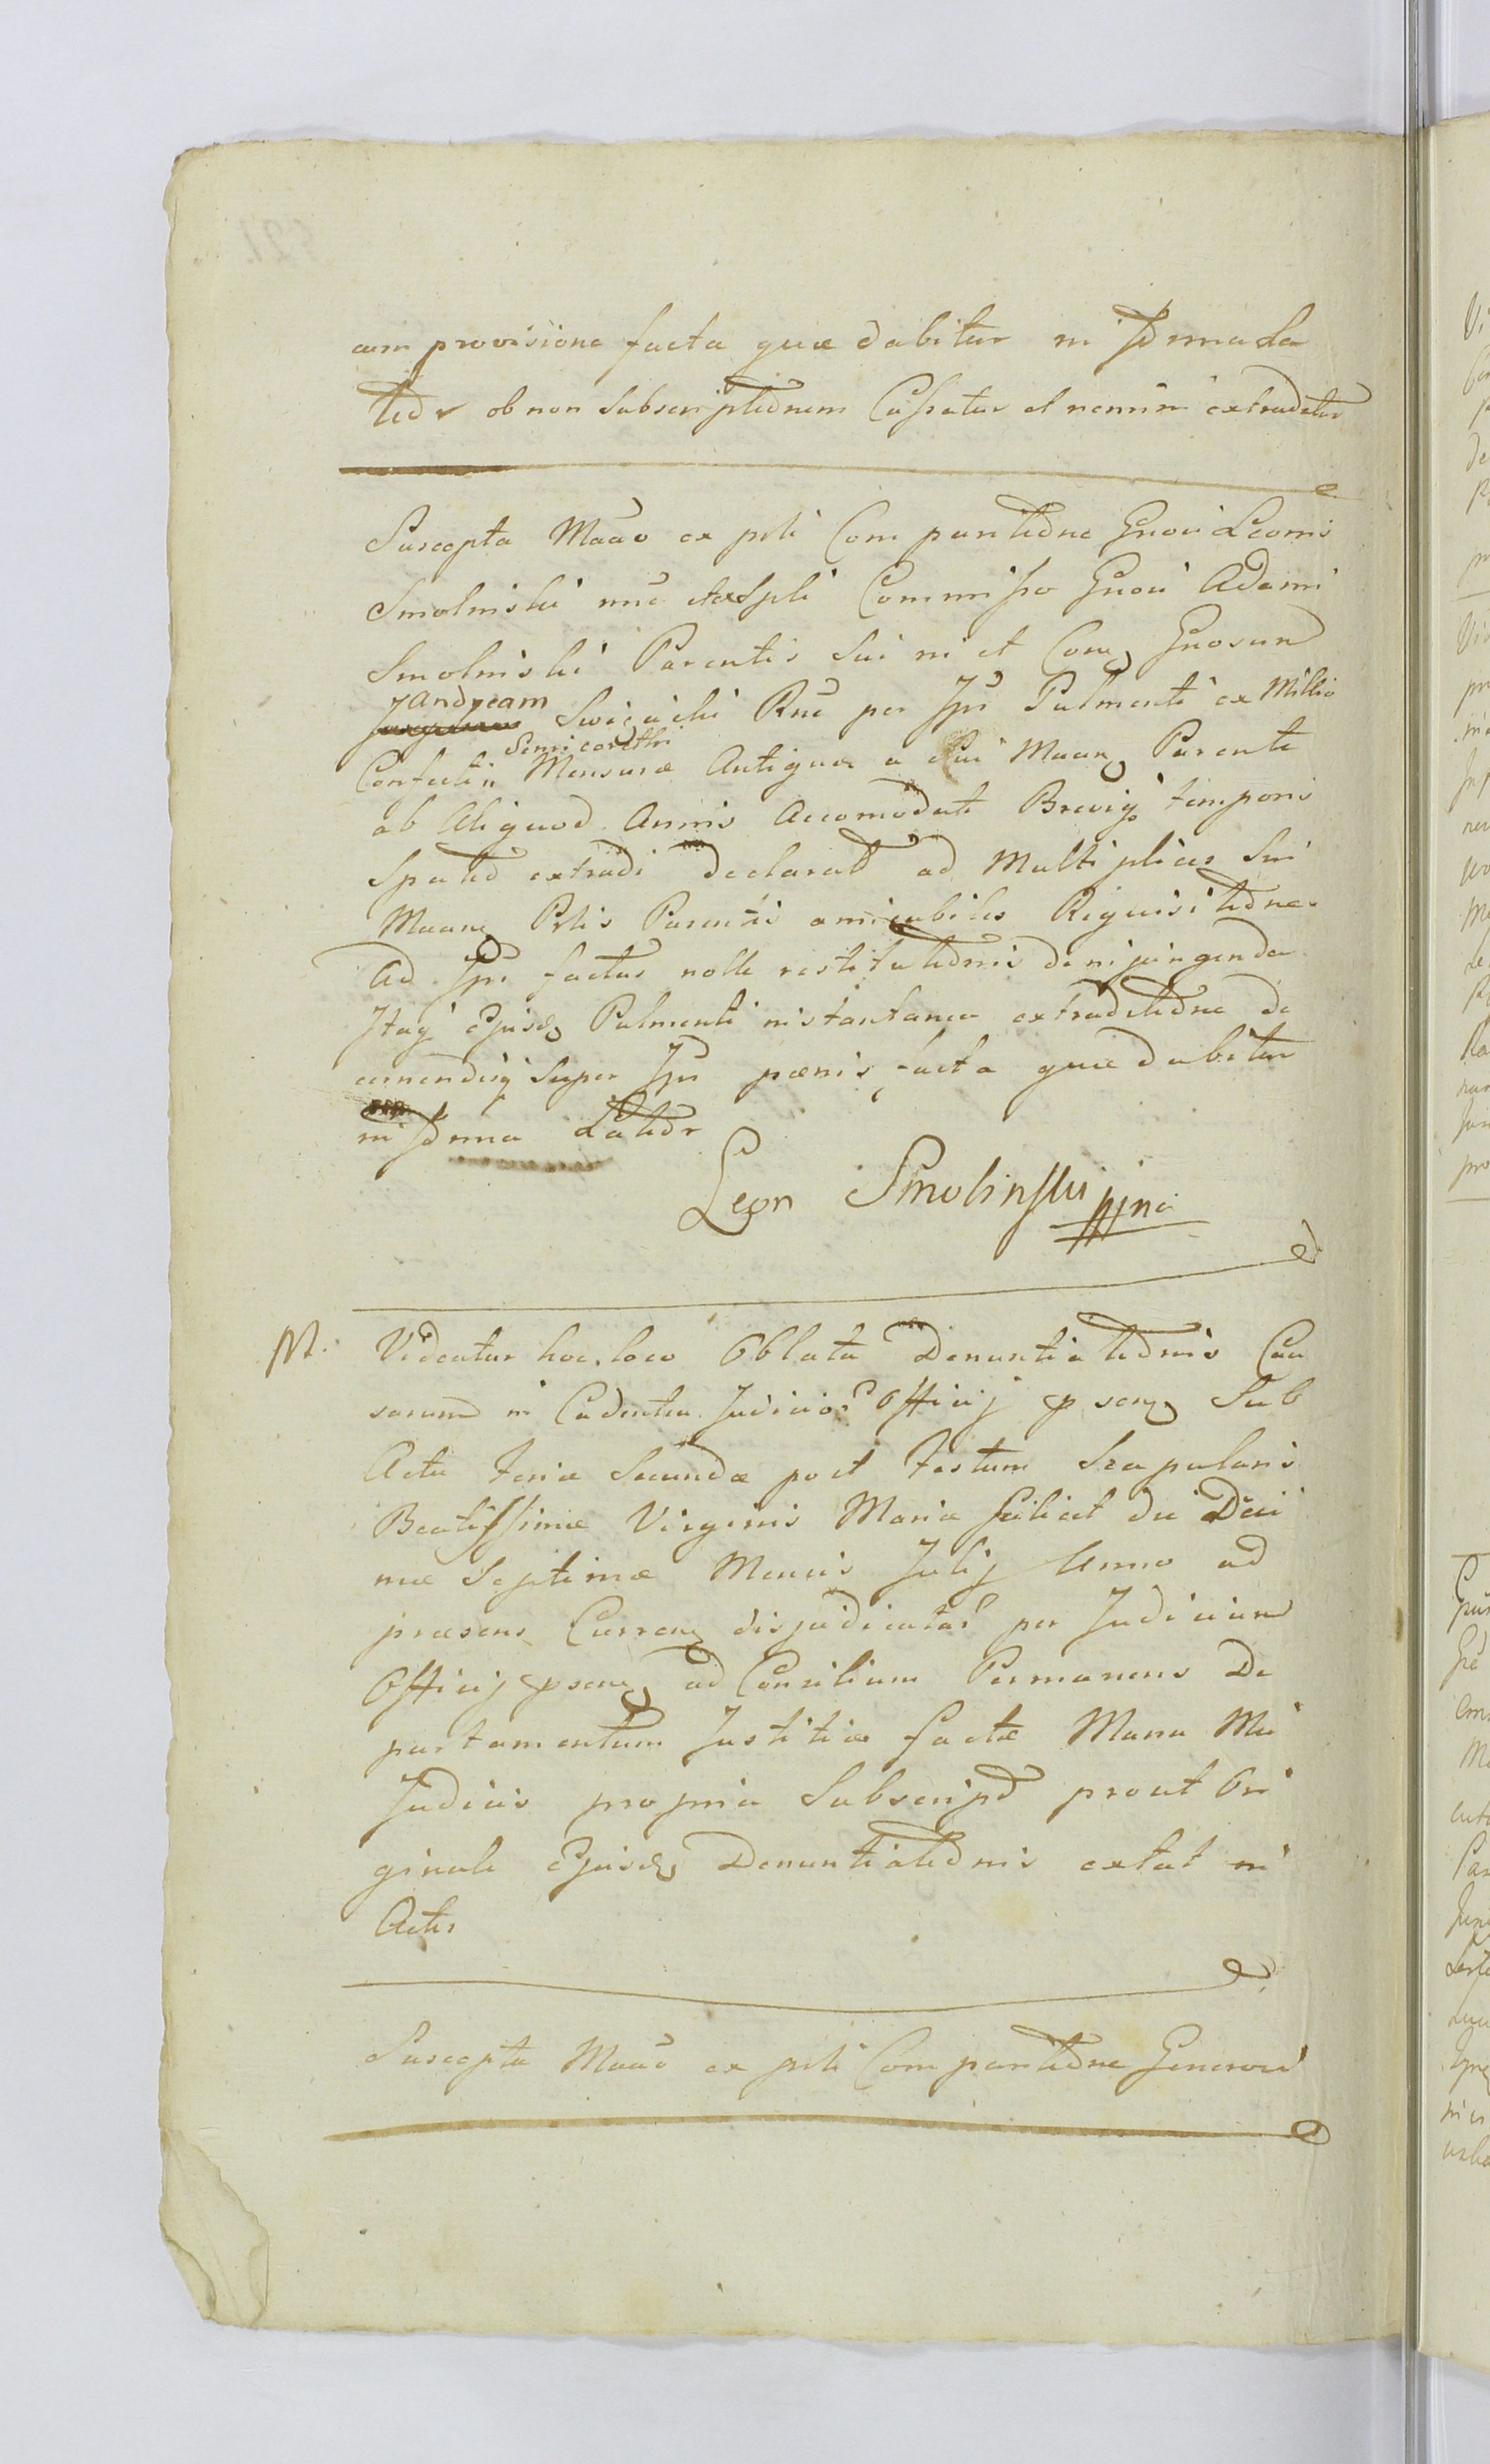 cum provisione facta quæ dabitur in forma La
tior ob non Subscriptionem Cassatur et nemini extradetur
Suscepta Maão ex psli Comparitione Gnosi Leonis
Smolinski nũc et ex Spli Commisso Gnosi Adami
Smolinski Parentis Sui in et Conq Gnosum
Jandream
Swięcicki Rnẽ per Ipm Pulmenti ex Millio
Semicorethi
Confecti Mensuræ Antiquæ a Sui Maanq Parente
ab Aliquod Annis Accomodati Brevioq temporis
Spatio extradi declarat ad Multiplices Sui
Maanq Pslis Parentis amicabiles Requisitiones
Ad Ipm factas nolle restitutionis de injungenda
Itaq Ejusdq Pulmenti instantanea extraditione de
cernendisq Super Ipm pænis facta quæ dabitur
in forma Latior
Leon Smolinski mp
M. Videatur hoc loco Oblata Denuntiationis Cau
sarum in Cadentia Judicior Officij psenq Sub
Actu Feriæ Secundæ post Festum Scapularis
Beatissimæ Virginis Mariæ scilicet die Deci
mæ Septimæ Mensis Julij Anno ad
præsens Currenq disjudicatar per Judicium
Officij psenq ad Consilium Permanens De
partamentum Justitiæ factæ Manu Mei
Judicis propria Subscript prout Ori
ginale Ejusdq Denuntiationis extat in
Actis
Suscepta Maão ex psli Comparitione Generosi